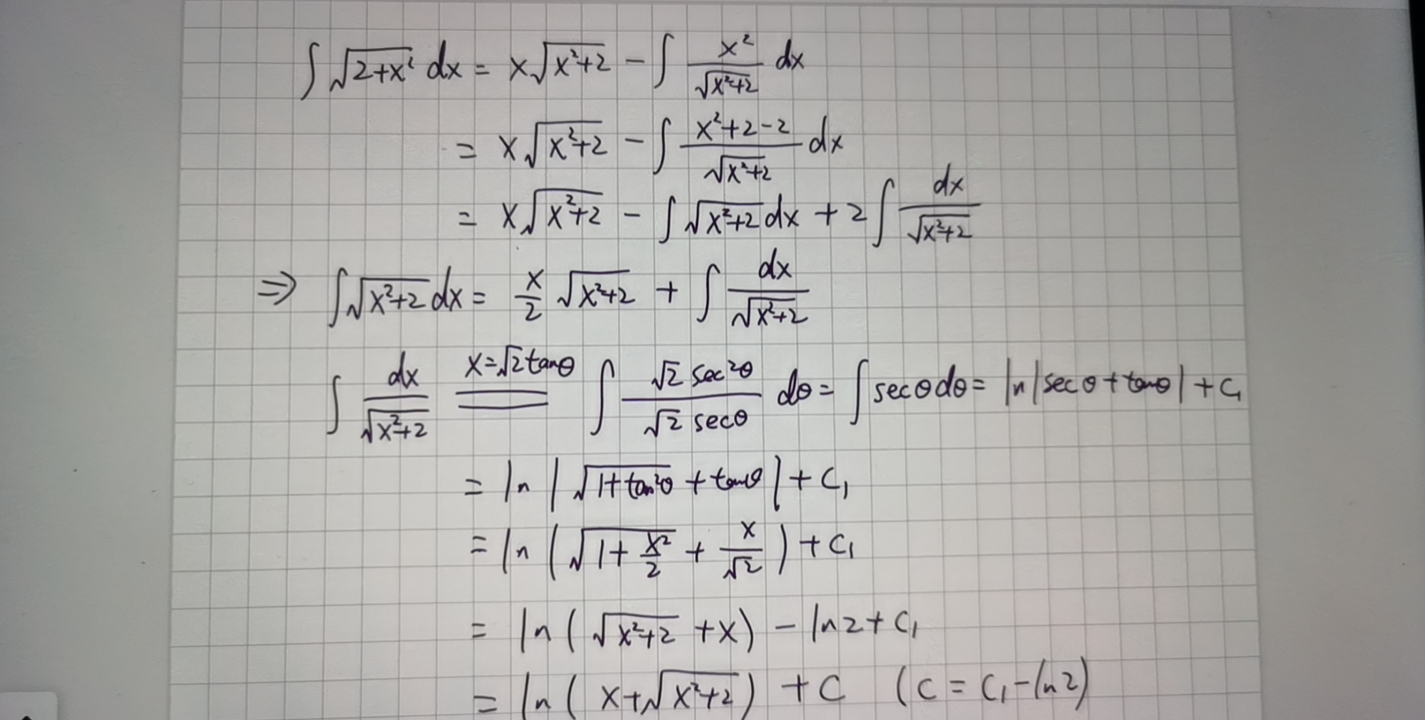 ∫√(2+x²) dx = x√(x²+2) − ∫ x²/√(x²+2) dx
= x√(x²+2) − ∫ (x²+2−2)/√(x²+2) dx
= x√(x²+2) − ∫√(x²+2) dx + 2∫ dx/√(x²+2)
⇒ ∫√(x²+2) dx = x/2 √(x²+2) + ∫ dx/√(x²+2)
∫ dx/√(x²+2) =(x=√2 tanθ)= ∫ (√2 sec²θ)/(√2 secθ) dθ = ∫ secθdθ = ln|secθ+tanθ| + C₁
= ln|√(1+tan²θ) + tanθ| + C₁
= ln(√(1+x²/2) + x/√2) + C₁
= ln(√(x²+2) + x) − ln2 + C₁
= ln(x+√(x²+2)) + C (C = C₁−ln2)